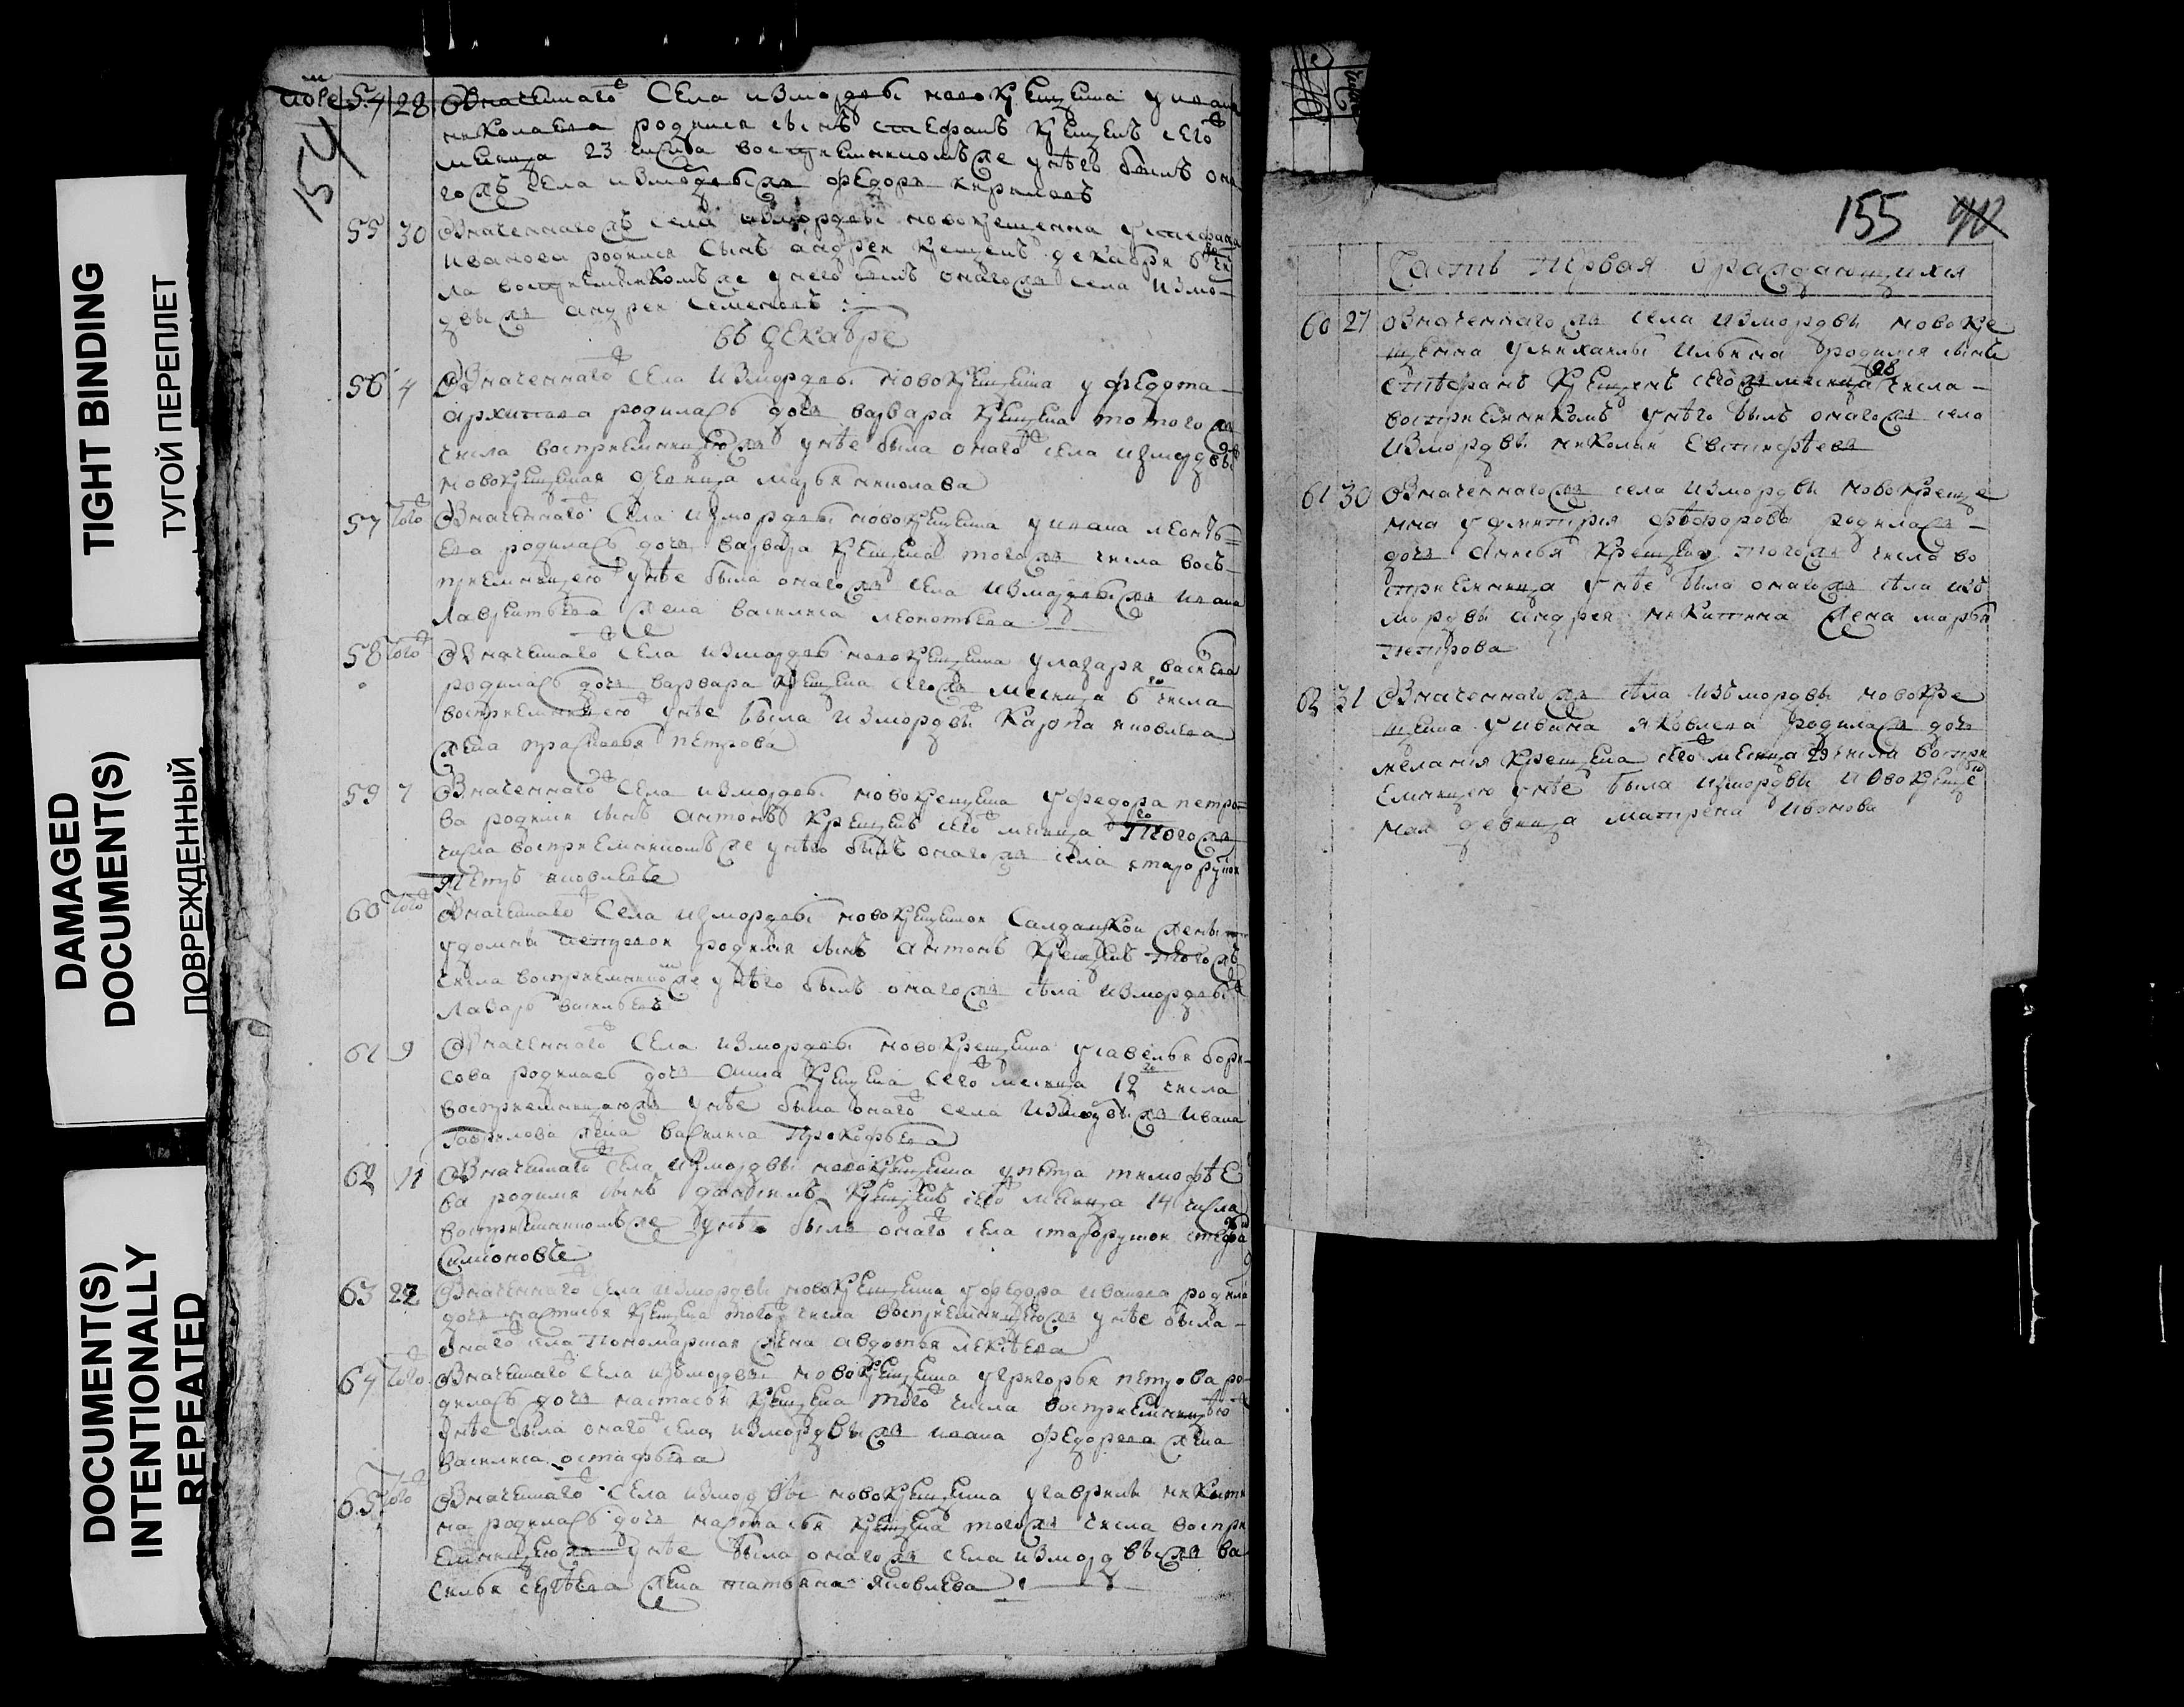 TIGHT BINDING
ТУГОЙ ПЕРЕПЛЕТ
DAMAGED
DOCUMENT(S)
ПОВРЕЖДЕННЫЙ
DOCUMENT(S)
INTENTIONALLY
REPEATED
154
54 28 Означеннаго села измордвы новокрещена у ивана
николаева родился сынъ стефанъ крещенъ сего
месяца 23 числа восприемникомже у него былъ она
гожъ села
федоръ кириловъ
55 30 Означеннагожъ села измордвы новокрещенна у стефана
иванова родился сынъ андрей крещенъ декабря 6 чи
сла восприемникомже у него былъ онагожъ села измо
андрей семеновъ
въ декабре
56 4 Означеннаго села измордвы новокрещена у федота
архипова родилась дочь варвара крещена тогожъ
числа восприемницеюжъ у нее была онаго села измордвы
новокрещеная девица марья николава
57 того Означеннаго села измордвы новокрещена у ивана леонть
ева родилась дочь варвара крещена тогожъ числа вось
приемницею у нее была онагожъ села измордвыжъ ивана
лаврентьева жена василиса леонотьева
58 того Означеннаго села измордвы новокрещена у лазаря василева
родилась дочь варвара крещена сегожъ месяца 6 числа
восприемницею у нее была измордвы карпа яковлева
жена прасковья петрова
59 7 Означеннаго села измордвы новокрещена у федора петро
ва родился сынъ антонъ крещенъ сего месяца тогожъ
числа восприемникомже у него былъ онагожъ села
петръ яковлевъ
60 того Означеннаго села измордвы новокрещеной салдацкой жены
у домны родился сынъ антонъ крещенъ тогожъ
числа восприемникомже у него былъ онагожъ села измордвы
лазарь васильевъ
61 9 Означеннаго села измордвы новокрещена у савелья бори
сова родилась дочь анна крещена сего месяца 12 числа
восприемницеюжъ у нее была онаго села измордвыжъ ивана
гаврилова жена василиса прокофьева
62 11 Означеннаго села измордвы новокрещена у петра тимофее
ва родился сынъ крещенъ сего месяца 14 числа
восприемникомже у него былъ онаго села
63 22 Означеннаго села измордвы новокрещена у федора иванова родила
дочь настасья крещена того числа восприемницеюжъ у нее была
онаго села пономарская жена авдотья
64 того Означеннаго села измордвы новокрещена у григорья петрова ро
дилась дочь настасья крещена того числа восприемницею
у нее была онаго села измордвыжъ ивана федорова жена
василиса остафьева
65 того Означеннаго села измордвы новокрещена у гаврилы никити
на родилась дочь настасья крещена тогожъ числа воспри
емницеюжъ у нее была онагожъ села измордвыжъ ва
силья сергеева жена татьяна яковлева
155
Часть первая о раждающихся
60 27 Означеннагожъ села измордвы новокре
щенна у михаилы ильина родился сынъ
стефанъ крещенъ сегожъ месяца 28 числа
восприемникомъ у него былъ онагожъ села
измордвы николай евстифеевъ
61 30 Означеннагожъ села измордвы новокреще
нна у дмитрия федорова родилась
дочь анисья крещена тогожъ числа во
сприемница у нее была онагожъ села из
мордвы андрея никитина жена марья
петрова
62 31 Означеннагожъ села измордвы новокре
щена у ивана яковлева родилась дочь
мелания крещена сего месяца 29 числа воспри
емницею у нее была измордвы новокреще
ная девица матрена иванова